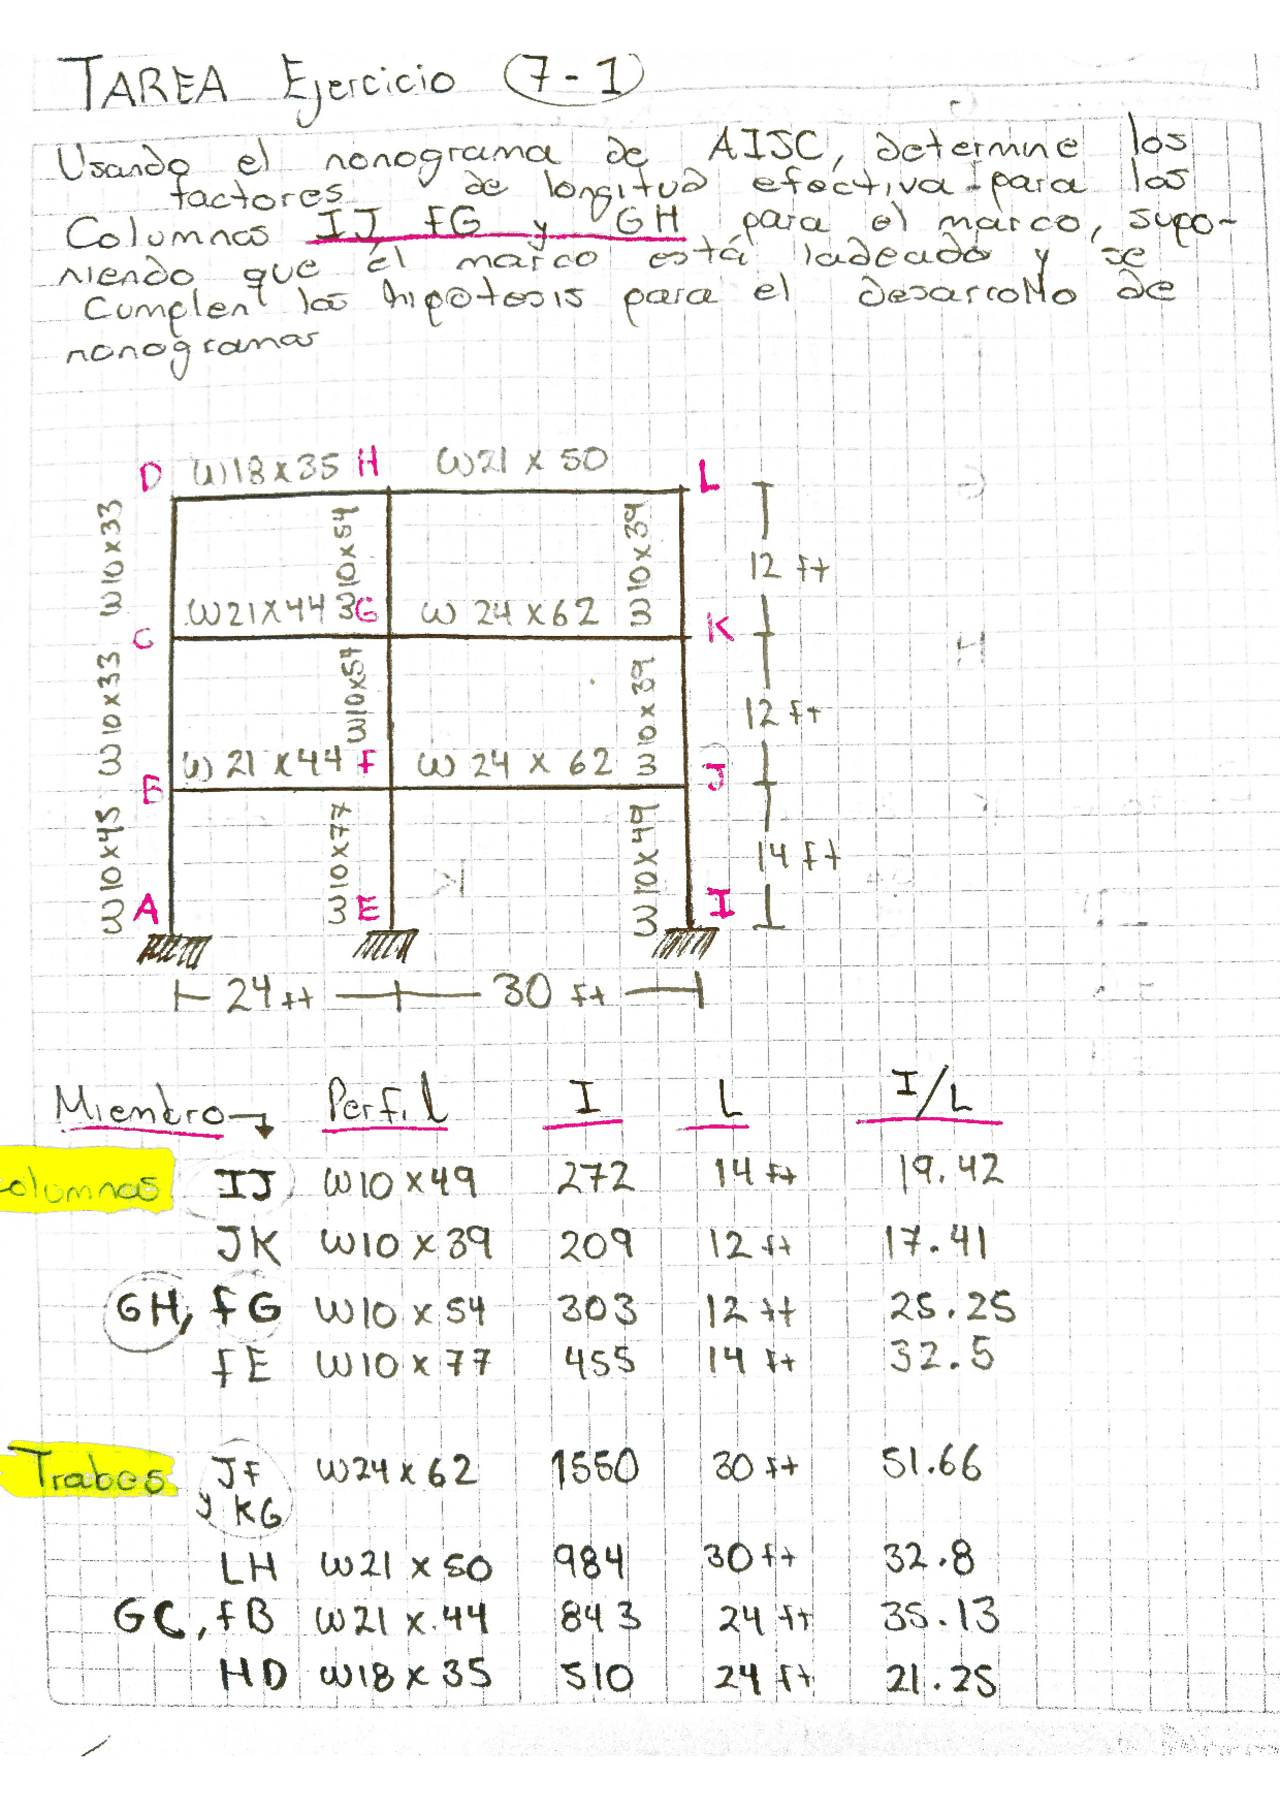 TAREA Ejercicio 7-1
Usando el nonograma de AISC, determine los
factores de longitud efectiva para las
Columnas IJ FG y GH para el marco, supo-
niendo que el marco está ladeado y se
Cumplen las hipótesis para el desarrollo de
nonogramas
D W18x35 H W21 x 50 L
W10x33 W10x54 W10x39 12 ft
C W21x44 G W 24 x 62 K
W10x33 W10x54 W10x39 12 ft
B W 21 x44 F W 24 x 62 J
W10x45 W10x77 W10x49 14 ft
A E I
24 ft 30 ft
Miembro Perfil I L I/L
Columnas IJ W10 x 49 272 14 ft 19.42
JK W10 x 39 209 12 ft 17.41
GH, FG W10 x 54 303 12 ft 25.25
FE W10 x 77 455 14 ft 32.5
Trabes JF W24 x 62 1550 30 ft 51.66
y KG
LH W21 x 50 984 30 ft 32.8
GC, FB W21 x 44 843 24 ft 35.13
HD W18 x 35 510 24 ft 21.25